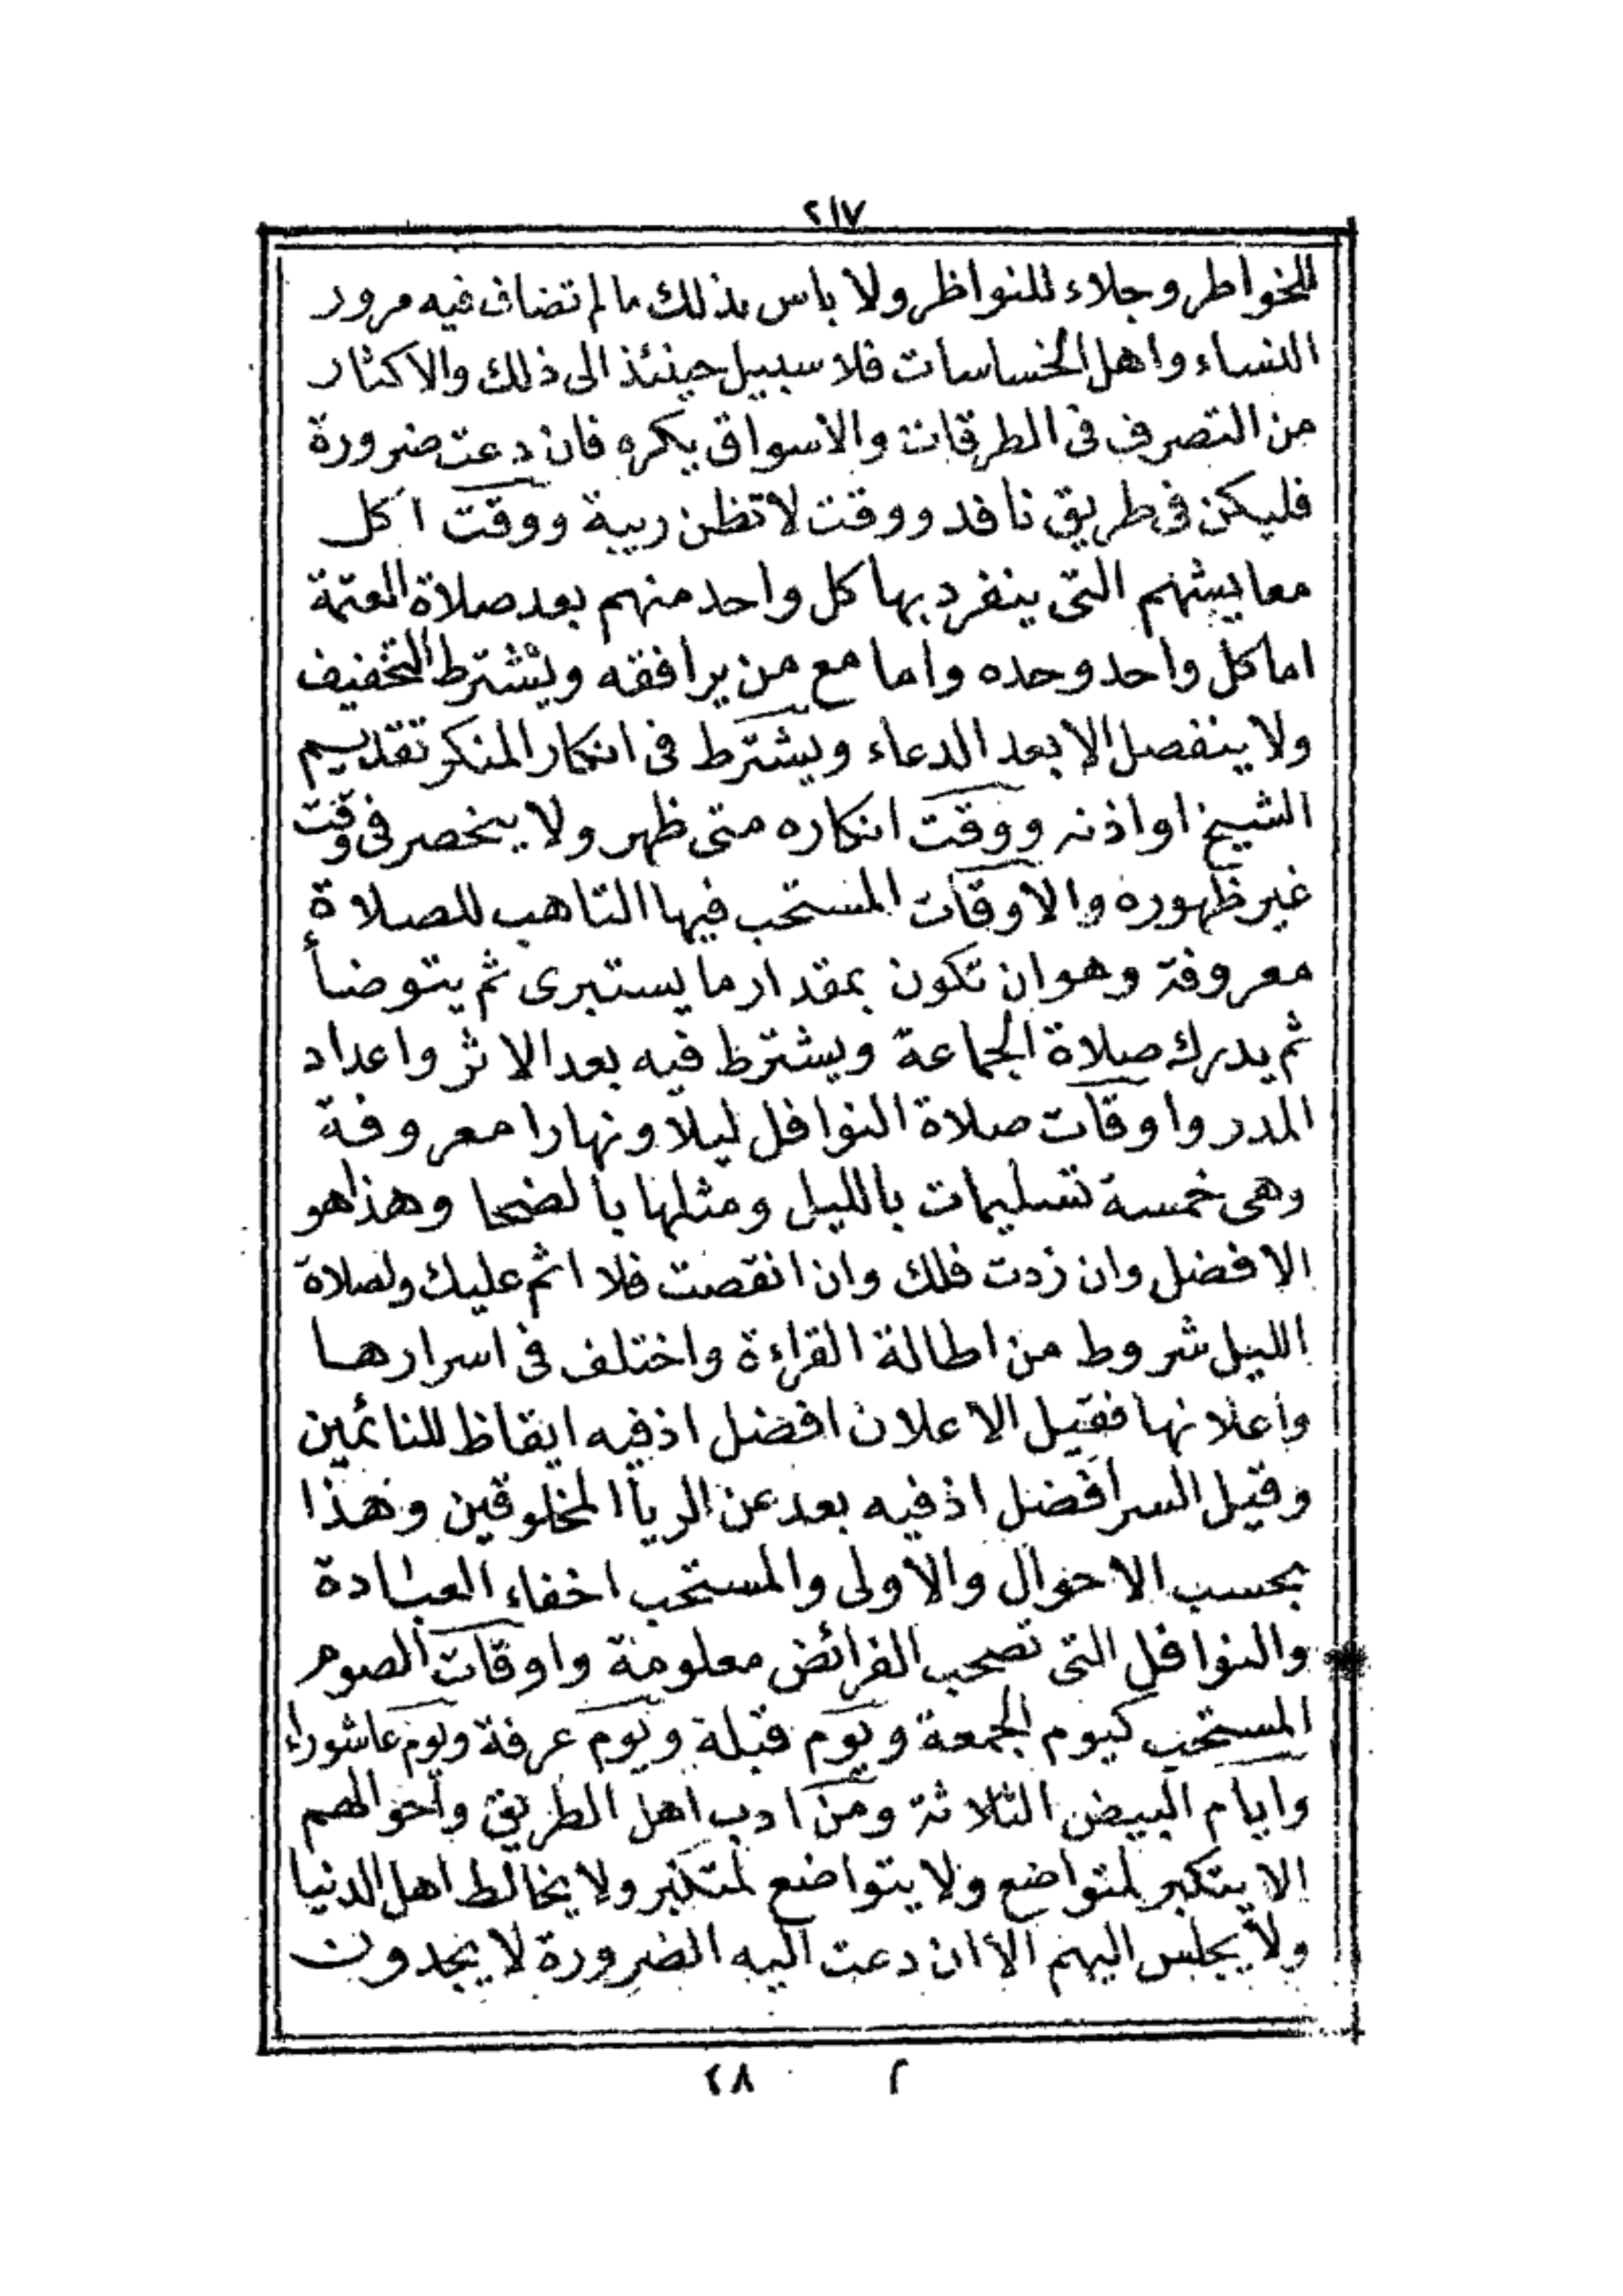 ٢١٧
للخواطر وجلاء للنواظر ولا باس بذلك ما لم تضاف فيه مرور
النساء واهل الخساسات فلا سبيل حينئذ الى ذلك والاكثار
من التصرف فى الطرقات والاسواق يكره فان دعت ضرورة
فليكن فى طريق نافد ووقت لا تظن ريبة ووقت اكل
معايشهم التى ينفرد بها كل واحد منهم بعد صلاة العتمة
اما كل واحد وحده واما مع من يرافقه ويشترط التخفيف
ولا ينفصل الا بعد الدعاء ويشترط فى انكار المنكر تقديم
الشيخ او اذنه ووقت انكاره متى ظهر ولا ينحصر فى وقت
غير ظهوره والاوقات المستحب فيها التاهب للصلاة
معروفة وهو ان تكون بمقدار ما يستبرى ثم يتوضأ
ثم يدرك صلاة الجماعة ويشترط فيه بعد الاثر واعداد
المدر واوقات صلاة النوافل ليلا ونهارا معروفة
وهى خمسة تسليمات بالليل ومثلها بالضحا وهذا هو
الافضل وان زدت فلك وان انقصت فلا اثم عليك ولصلاة
الليل شروط من اطالة القراءة واختلف فى اسرارها
واعلانها فقيل الاعلان افضل اذ فيه ايقاظ للنائمين
وقيل السر افضل اذ فيه بعد عن الريأ المخلوقين وهذا
بحسب الاحوال والاولى والمستحب اخفاء العبادة
والنوافل التى تصحب الفرائض معلومة واوقات الصوم
المستحب كيوم الجمعة ويوم قبلة ويوم عرفة ويوم عاشوراء
وايام البيض الثلاثة ومن ادب اهل الطريق واحوالهم
الا يتكبر لمتواضع ولا يتواضع لمتكبر ولا يخالط اهل الدنيا
ولا يجلس اليهم الا ان دعت اليه الضرورة لا يجدون
٢ ٢٨